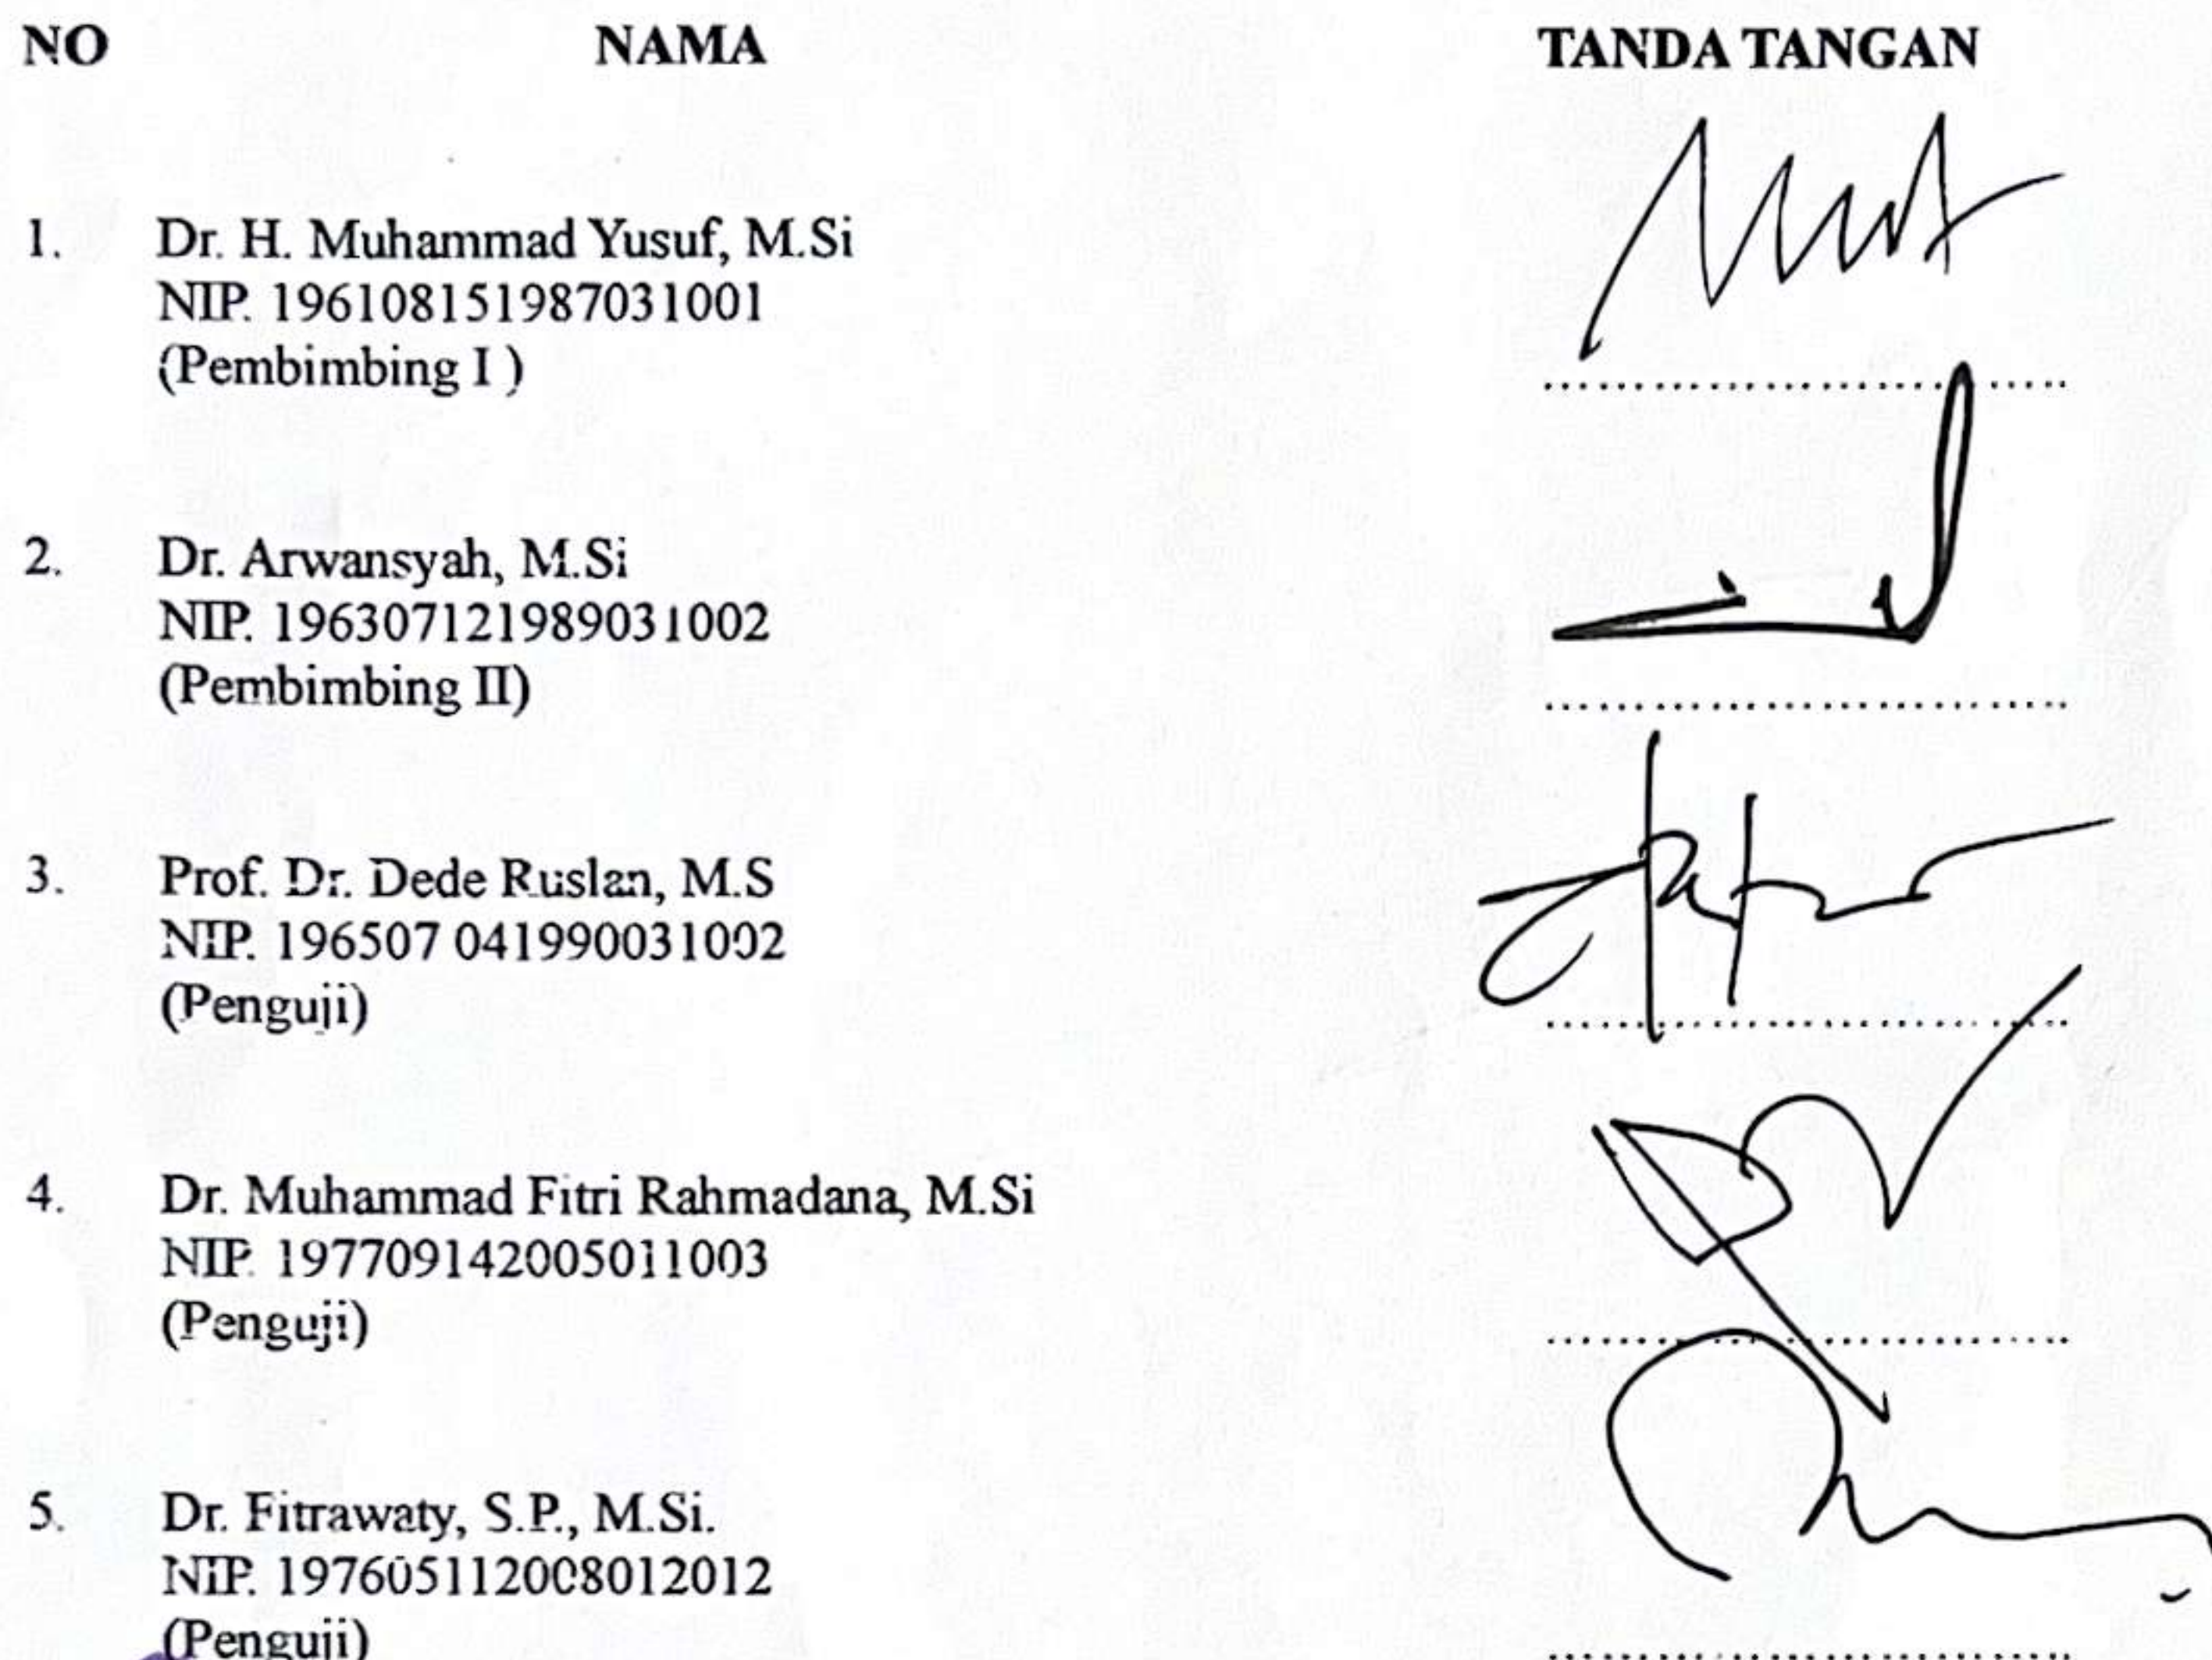 NO NAMA TANDA TANGAN
1. Dr. H. Muhammad Yusuf, M.Si
NIP. 196108151987031001
(Pembimbing I )
2. Dr. Arwansyah, M.Si
NIP. 196307121989031002
(Pembimbing II)
3. Prof. Dr. Dede Ruslan, M.S
NIP. 196507 041990031002
(Penguji)
4. Dr. Muhammad Fitri Rahmadana, M.Si
NIP. 197709142005011003
(Penguji)
5. Dr. Fitrawaty, S.P., M.Si.
NIP. 197605112008012012
(Penguji)